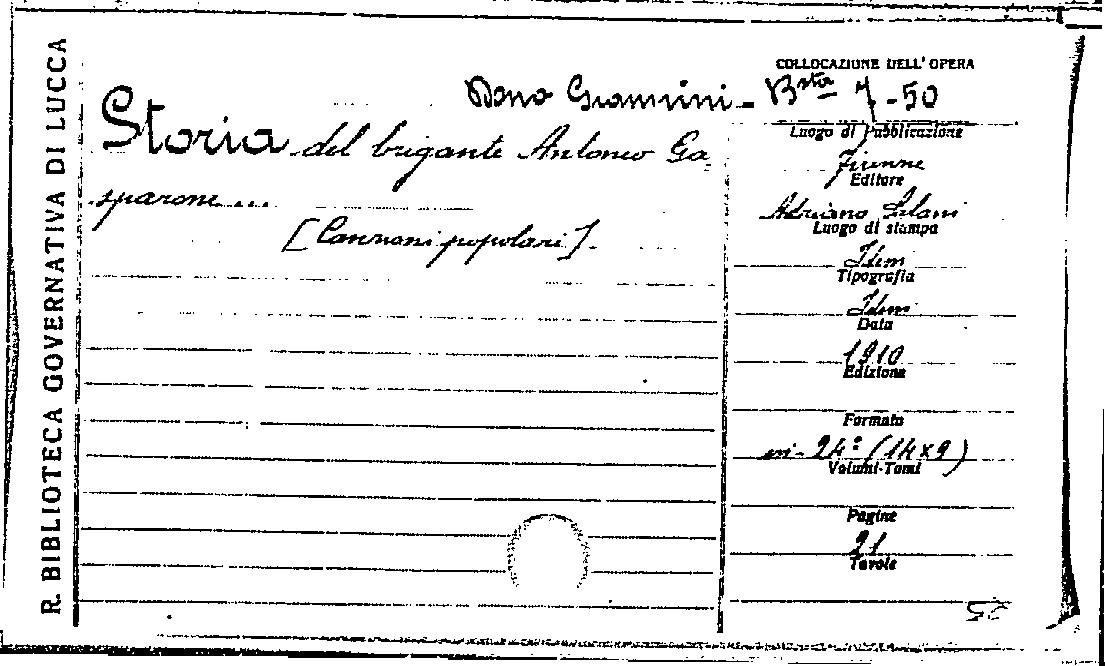 R. BIBLIOTECA GOVERNATIVA DI LUCCA
COLLOCAZIONE DELL' OPERA
Dono Giannini - Bsta 7 - 50
Storia del brigante Antonio Ga-
sparone...
[Canzoni popolari].
Luogo di Pubblicazione
Firenze
Editore
Adriano Salani
Luogo di stampa
Idem
Tipografia
Idem
Data
1910
Edizione
Formato
in-24º (14x9)
Volumi-Tomi
Pagine
21
Tavole
25